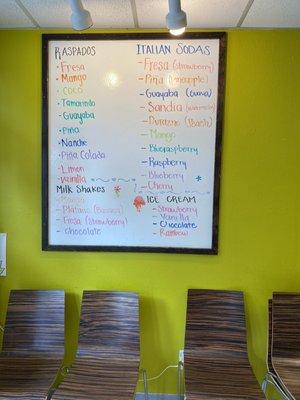 RASPADOS
- Fresa
- Mango
- COCO
- Tamarindo
- Guayaba
- Piña
- Nanche
- Piña Colada
- Limon
- Vainilla
Milk Shakes
- Mango
- Platano (Banana)
- Fresa (Strawberry)
- Chocolate
ITALIAN SODAS
- Fresa (Strawberry)
- Piña (Pineapple)
- Guayaba (Guava)
- Sandia (Watermelon)
- Durazno (Peach)
- Mango
- Blue raspberry
- Raspberry
- Blueberry
- Cherry
ICE CREAM
- Strawberry
- Vainilla
- Chocolate
- Rainbow